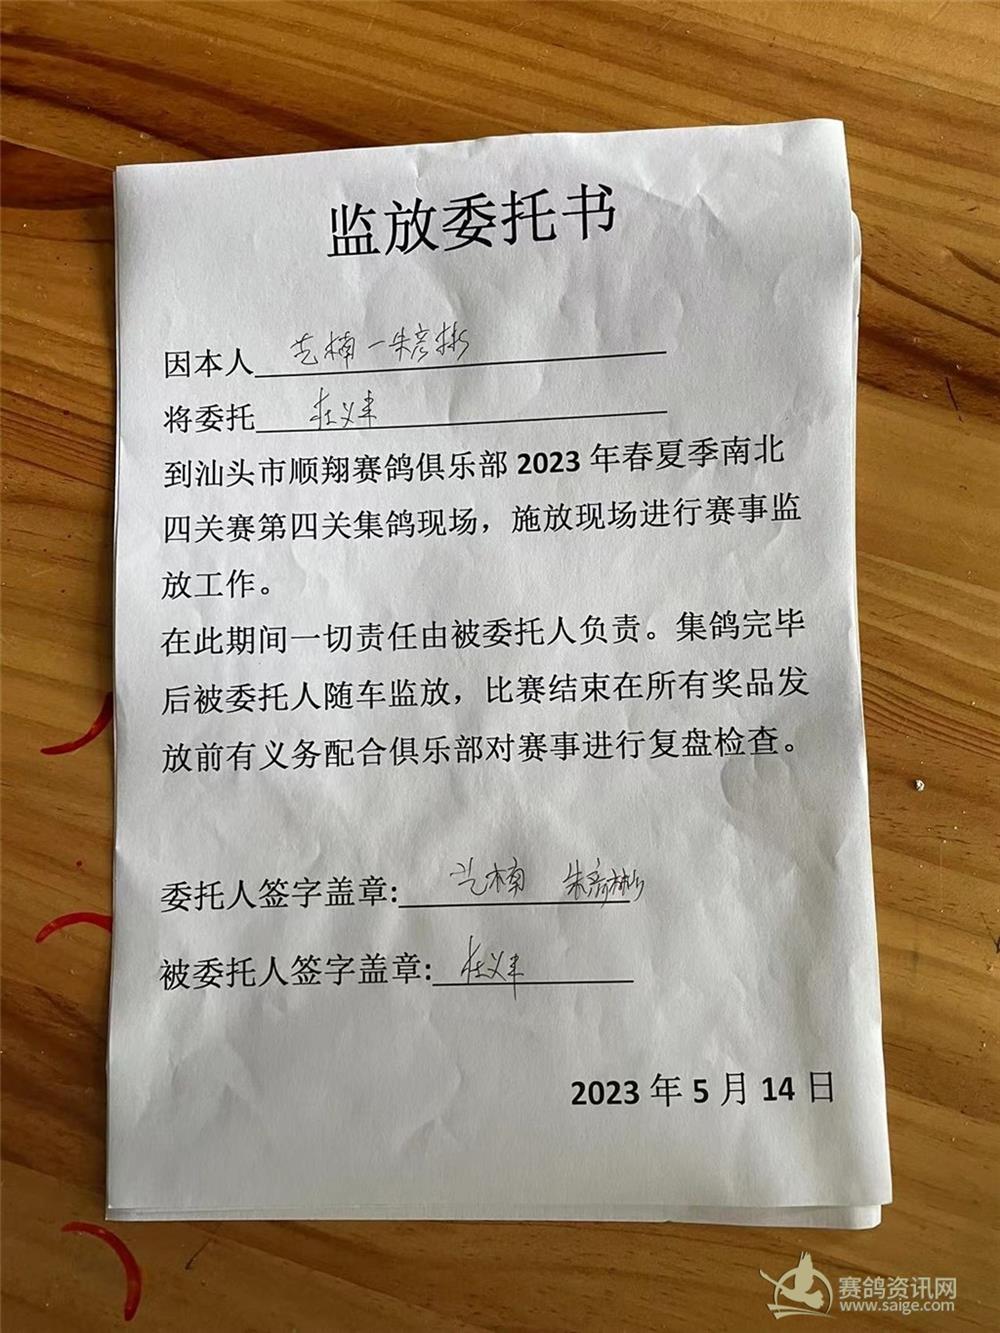 监放委托书
因本人 艺楠一朱彦彬
将委托 杜义丰
到汕头市顺翔赛鸽俱乐部 2023 年春夏季南北
四关赛第四关集鸽现场，施放现场进行赛事监
放工作。
在此期间一切责任由被委托人负责。集鸽完毕
后被委托人随车监放，比赛结束在所有奖品发
放前有义务配合俱乐部对赛事进行复盘检查。
委托人签字盖章: 艺楠 朱彦彬
被委托人签字盖章: 杜义丰
2023 年 5 月 14 日
赛鸽资讯网
www.saige.com